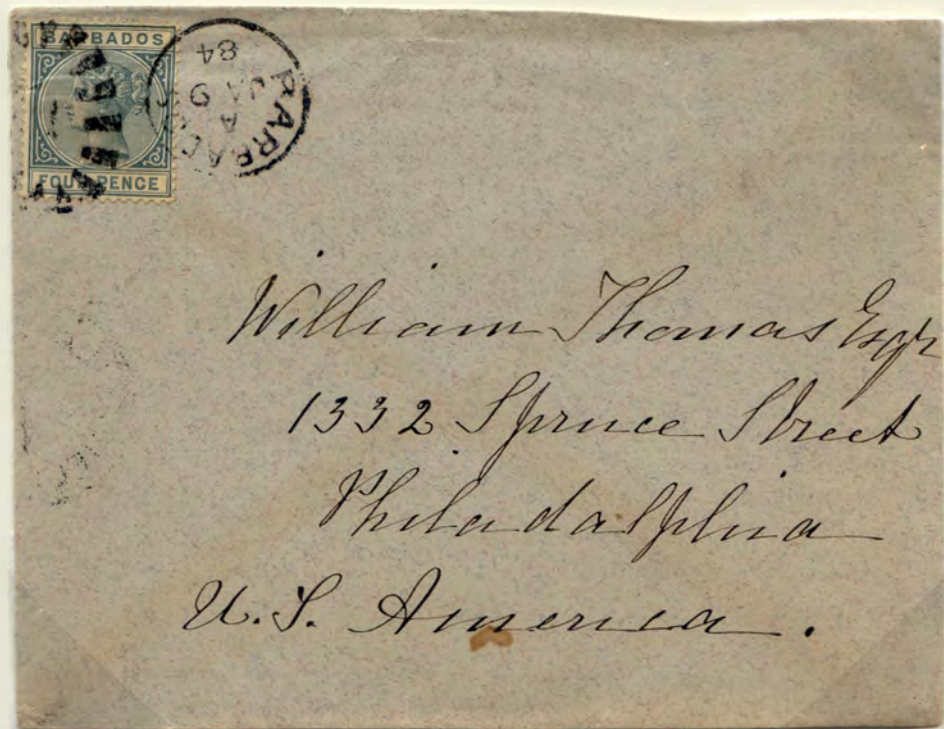 BARBADOS
FOUR PENCE
BARBADOS
A
JA 9
84
William Thomas Esqr
1332 Spruce Street
Philadalphia
U.S. America.